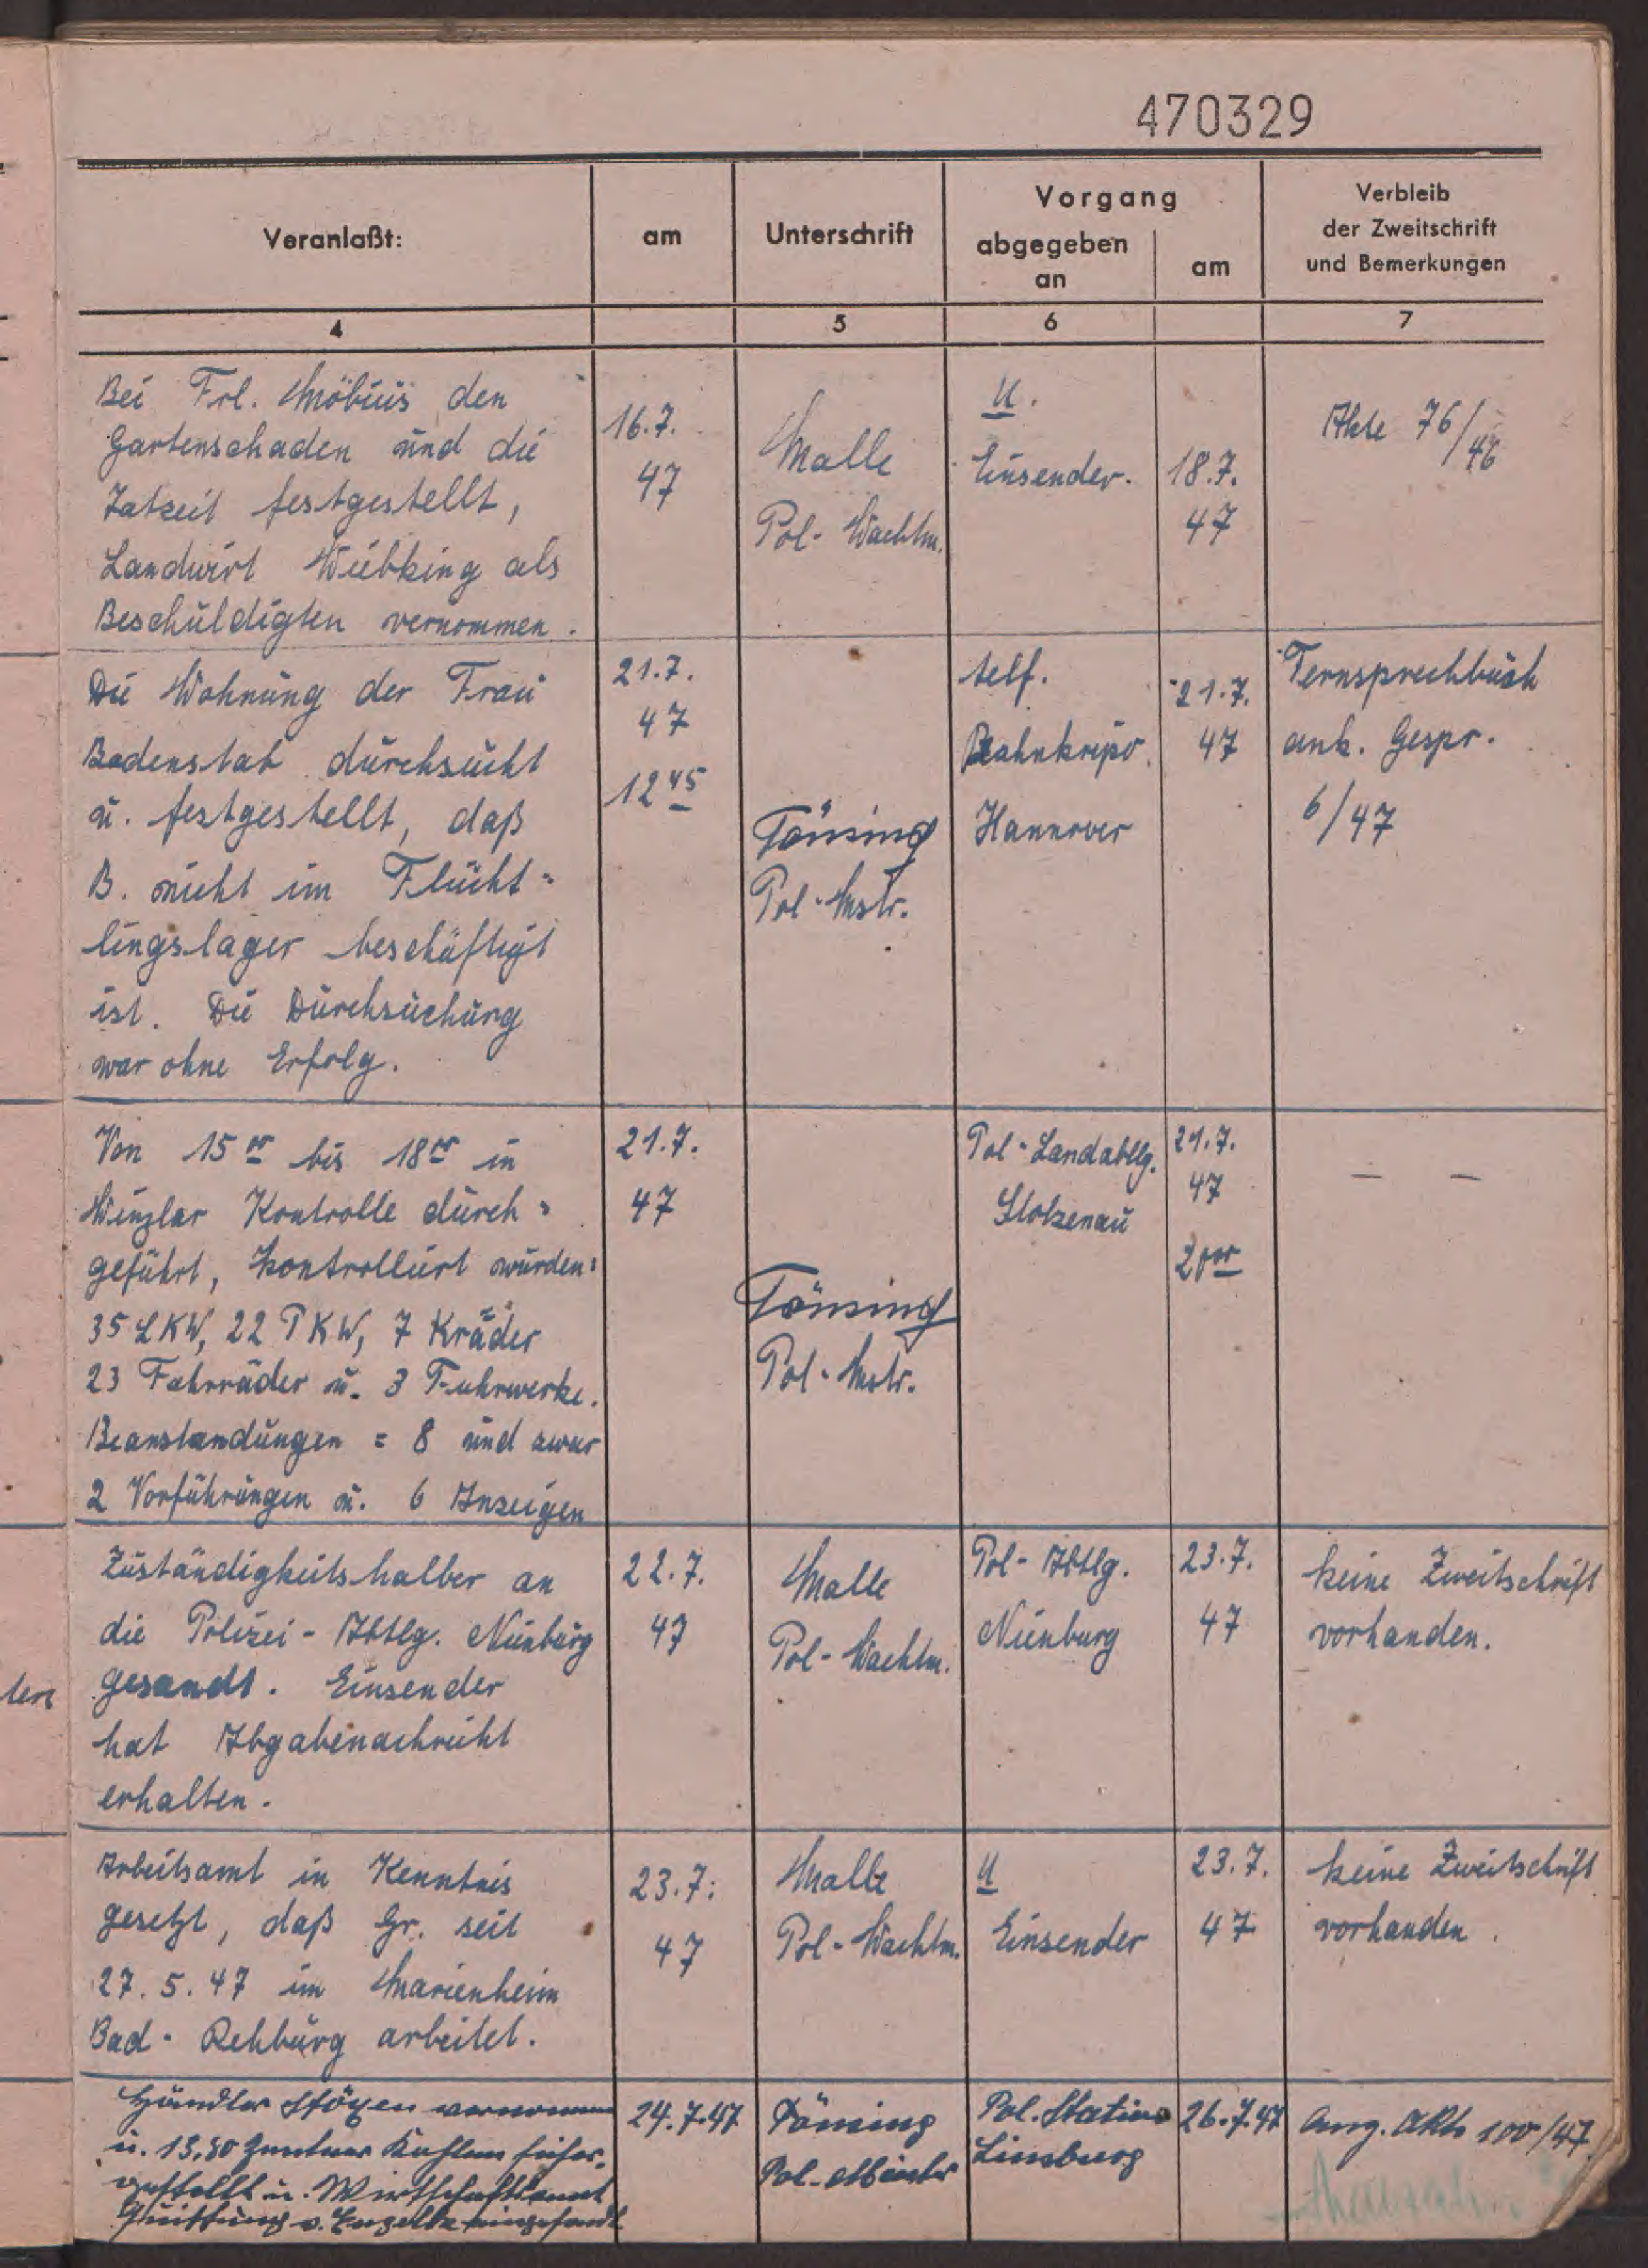 470329
Veranlaßt:
am
Unterschrift
Vorgang
abgegeben
an
am
Verbleib
der Zweitschrift
und Bemerkungen
4
5
6
7
Bei Frl. Möbius den
Gartenschaden und die
Tatzeit festgestellt,
Landwirt Wübking als
Beschuldigten vernommen.
16.7.
47
Malle
Pol- Wachtm.
U.
Einsender.
18.7.
47
Akte 76/46
Die Wohnung der Frau
Badenstab durchsucht
u. festgestellt, daß
B. nicht im Flücht-
lingslager beschäftigt
ist. Die Durchsuchung
war ohne Erfolg.
21.7.
47
12 45
Tönsing
Pol-Mstr.
telf.
Bahnkripo.
Hannover
21.7.
47
Fernsprechbuch
ank. Gespr.
6/47
Von 15 00 bis 18 00 in
Winzlar Kontrolle durch-
geführt, kontrolliert wurden:
35 LKW, 22 PKW, 7 Kräder
23 Fahrräder u. 3 Fuhrwerke.
Beanstandungen = 8 und zwar
2 Vorführungen u. 6 Anzeigen
21.7.
47
Tönsing
Pol-Mstr.
Pol-Landabtlg.
Stolzenau
21.7.
47
— —
Zuständigkeitshalber an
die Polizei-Abtlg. Nienburg
gesandt. Einsender
hat Abgabenachricht
erhalten.
22.7.
47
Malle
Pol- Wachtm.
Pol- Abtlg.
Nienburg
23.7.
47
keine Zweitschrift
vorhanden.
Arbeitsamt in Kenntnis
gesetzt, daß Gr. seit
27.5.47 im Marienheim
Bad-Rehburg arbeitet.
23.7.
47
Malle
Pol-Wachtm.
U
Einsender
23.7.
47
keine Zweitschrift
vorhanden.
Händler vernommen
u. 13,50 Zentner Kohlen sicher-
gestellt u. Wirtschaftsamt
Quittung v. Engelke eingesandt
24.7.47
Tönsing
Pol-Meister
Pol. Station
Linsburg
26.7.47
Anz. Akte 100/47